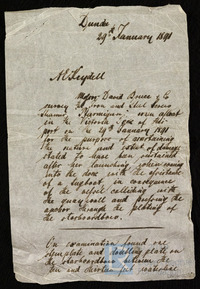 Dundee
29th January 1891
Messrs David Bruce & Co
survey the Iron and Steel Screw
Steamer
in the Victoria Dock of this
port on the 29th January 1891
for the purpose of ascertaining
the nature and extent of damage
stated to have been sustained
after her launching, when coming
into the dock with the assistance
of a tugboat in consequence
of the vessel colliding with
the quay wall and forcing the
anchor through the plating of
the starboard bow.
On examination found one
stem plate and doubling plate on
the starboard bow between the
ten and